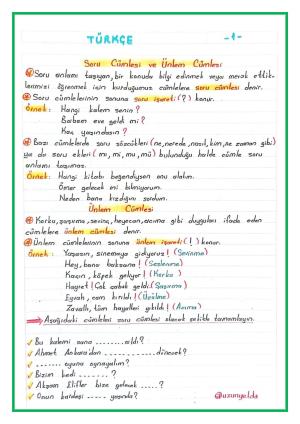 TÜRKÇE -1-
Soru Cümlesi ve Ünlem Cümlesi
Soru anlamı taşıyan, bir konuda bilgi edinmek veya merak ettik-
lerimizi öğrenmek için kurduğumuz cümlelere soru cümlesi denir.
Soru cümlelerinin sonuna soru işareti (?) konur.
Örnek: Hangi kalem senin?
Barbaen eve geldi mi?
Kaç yaşındasın?
Bazı cümlelerde soru sözcükleri (ne, nerede, nasıl, kim, ne zaman gibi)
ya da soru ekleri (mı, mi, mu, mü) bulunduğu halde cümle soru
anlamı taşımaz.
Örnek: Hangi kitabı beğendiysen onu alalım.
Ömer gelecek mi bilmiyorum.
Neden bana kızdığını sordum.
Ünlem Cümlesi
Korku, şaşırma, sevinç, heyecan, acıma gibi duyguları ifade eden
cümlelere ünlem cümlesi denir.
Ünlem cümlelerinin sonuna ünlem işareti (!) konur.
Örnek: Yaşasın, sinemaya gidiyoruz! (Sevinme)
Hey, bana baksana! (Seslenme)
Kaçın, köpek geliyor! (Korku)
Hayret! Çok çabuk geldin. (Şaşırma)
Eyvah, cam kırıldı! (Üzülme)
Zavallı, tüm hayalleri yıkıldı! (Acıma)
Aşağıdaki cümleleri soru cümlesi olacak şekilde tamamlayın.
Bu kalemi sana ......... aldı?
Ahmet Ankara'dan ............ dönecek?
...... oyunu oynayalım?
Bizim kedi ..... ?
Akşam Elifler bize gelecek ..... ?
Onun kardeşi ...... yaşında?
@uzunyelda